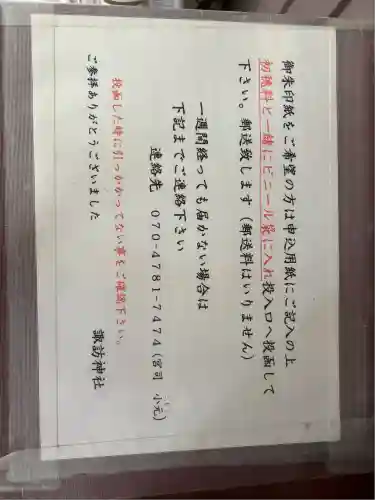 御朱印紙をご希望の方は申込用紙にご記入の上
初穂料と一緒にビニール袋に入れ投入口へ投函して
下さい。郵送致します（郵送料はいりません）
一週間経っても届かない場合は
下記までご連絡下さい
連絡先　070-4781-7474（宮司　小元）
投函した時に引っかかってない事をご確認下さい。
ご参拝ありがとうございました
諏訪神社